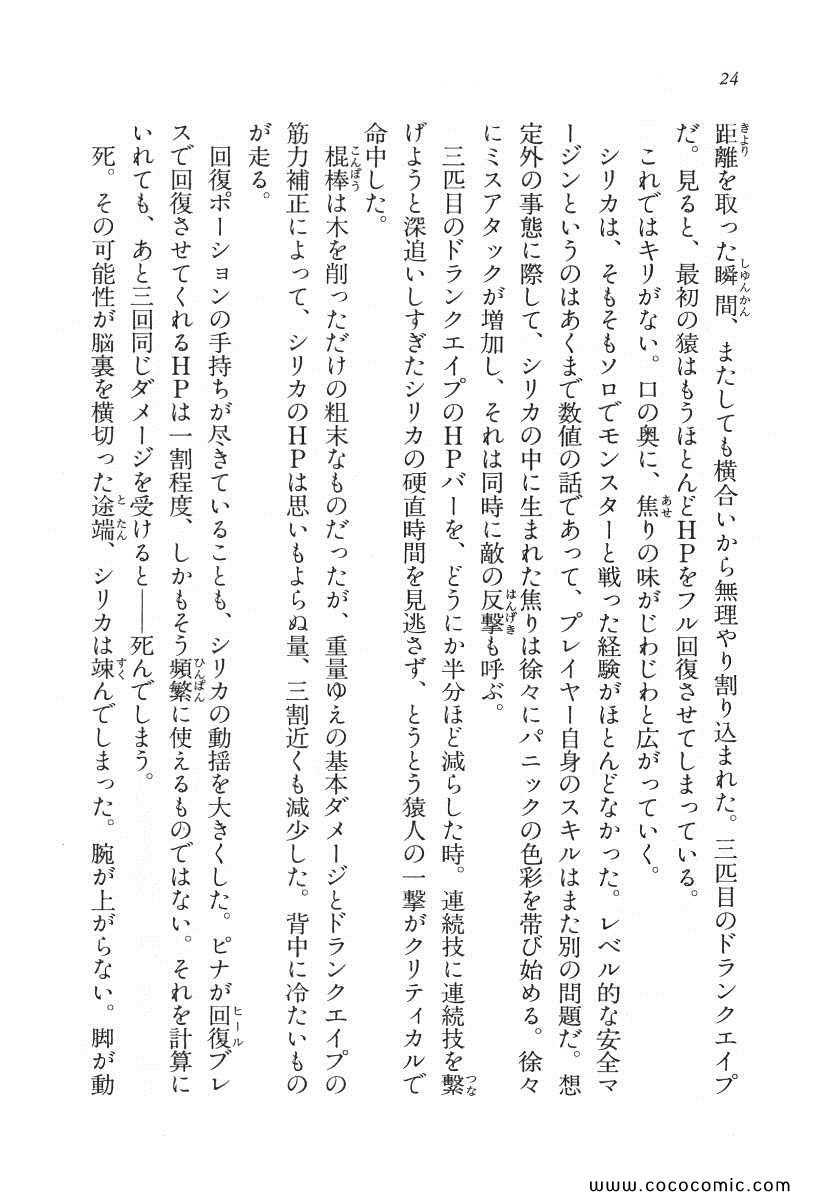 24
距離を取った瞬間、またしても横合いから無理やり割り込まれた。三匹目のドランクエイプ
だ。見ると、最初の猿はもうほとんどHPをフル回復させてしまっている。
これではキリがない。口の奥に、焦りの味がじわじわと広がっていく。
シリカは、そもそもソロでモンスターと戦った経験がほとんどなかった。レベル的な安全マ
ージンというのはあくまで数値の話であって、プレイヤー自身のスキルはまた別の問題だ。想
定外の事態に際して、シリカの中に生まれた焦りは徐々にパニックの色彩を帯び始める。徐々
にミスアタックが増加し、それは同時に敵の反撃も呼ぶ。
三匹目のドランクエイプのHPバーを、どうにか半分ほど減らした時。連続技に連続技を繫
げようと深追いしすぎたシリカの硬直時間を見逃さず、とうとう猿人の一撃がクリティカルで
命中した。
棍棒は木を削っただけの粗末なものだったが、重量ゆえの基本ダメージとドランクエイプの
筋力補正によって、シリカのHPは思いもよらぬ量、三割近くも減少した。背中に冷たいもの
が走る。
回復ポーションの手持ちが尽きていることも、シリカの動揺を大きくした。ピナが回復ブレ
スで回復させてくれるHPは一割程度、しかもそう頻繁に使えるものではない。それを計算に
いれても、あと三回同じダメージを受けると――死んでしまう。
死。その可能性が脳裏を横切った途端、シリカは竦んでしまった。腕が上がらない。脚が動
www.cococomic.com